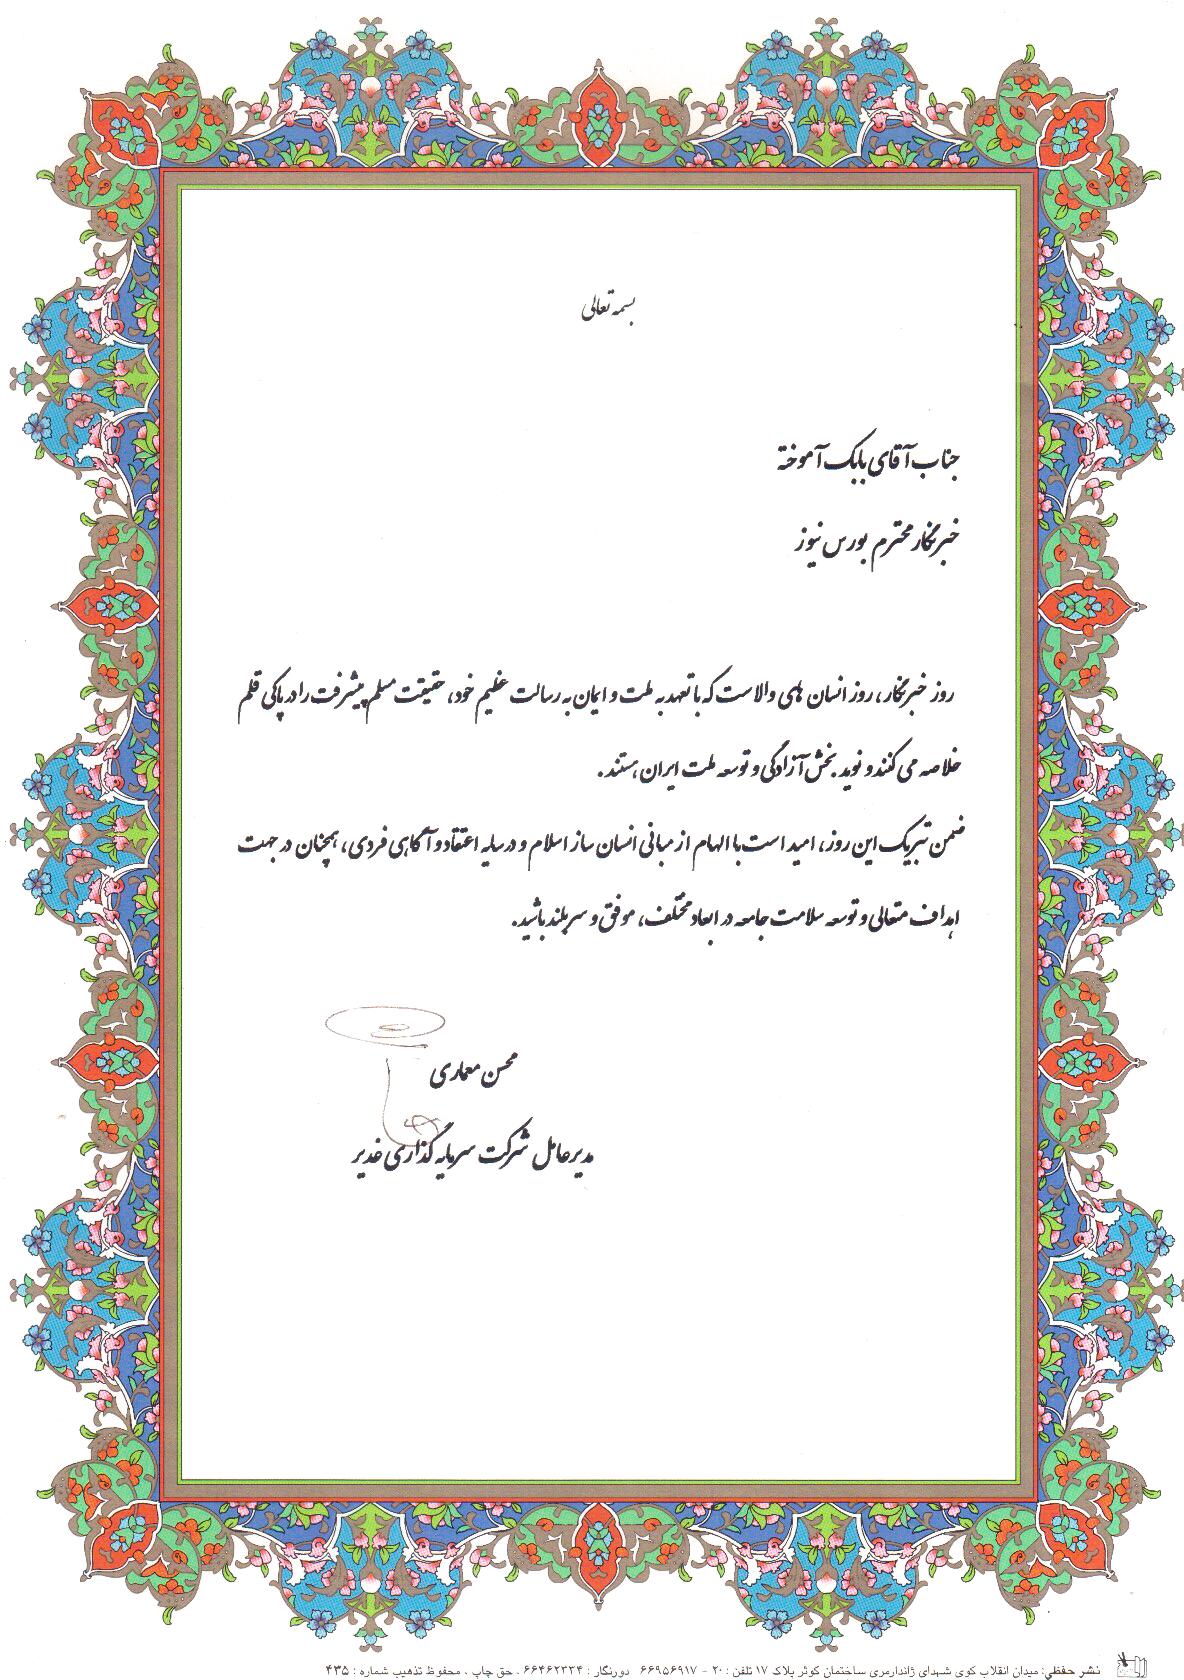 بسمه تعالی
جناب آقای بابک آموخته
خبرنگار محترم بورس نیوز
روز خبرنگار، روز انسان های والاست که با تعهد به ملت و ایمان به رسالت عظیم خود، حقیقت مسلم پیشرفت را در پاکی قلم
خلاصه می کنند و نوید بخش آزادگی و توسعه ملت ایران هستند.
ضمن تبریک این روز، امید است با الهام از مبانی انسان ساز اسلام و در سایه اعتقاد و آگاهی فردی، همچنان در جهت
اهداف متعالی و توسعه سلامت جامعه در ابعاد مختلف، موفق و سربلند باشید.
محسن معماری
مدیرعامل شرکت سرمایه گذاری غدیر
نشر حفظی: میدان انقلاب کوی شهدای ژاندارمری ساختمان کوثر پلاک ۱۷ تلفن : ۲۰ - ۶۶۹۵۶۹۱۷ دورنگار : ۶۶۴۶۲۲۳۴ . حق چاپ . محفوظ تذهیب شماره : ۴۳۵